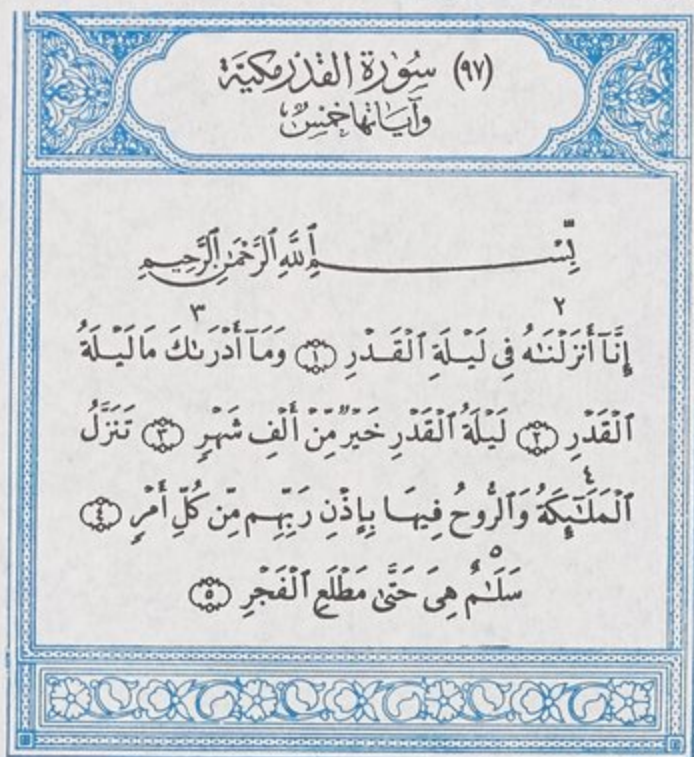 (٩٧) سُورَة القَدْر مَكيَّة
وَآيَاتهَا خَمْسٌ
بِّسْمِ ٱللَّهِ ٱلرَّحْمَٰنِ ٱلرَّحِيمِ
٣ ٢
إِنَّآ أَنزَلْنَٰهُ فِى لَيْلَةِ ٱلْقَدْرِ ١ وَمَآ أَدْرَىٰكَ مَا لَيْلَةُ
ٱلْقَدْرِ ٢ لَيْلَةُ ٱلْقَدْرِ خَيْرٌ مِّنْ أَلْفِ شَهْرٍ ٣ تَنَزَّلُ
٤
ٱلْمَلَٰٓئِكَةُ وَٱلرُّوحُ فِيهَا بِإِذْنِ رَبِّهِم مِّن كُلِّ أَمْرٍ ٤
٥
سَلَٰمٌ هِىَ حَتَّىٰ مَطْلَعِ ٱلْفَجْرِ ٥